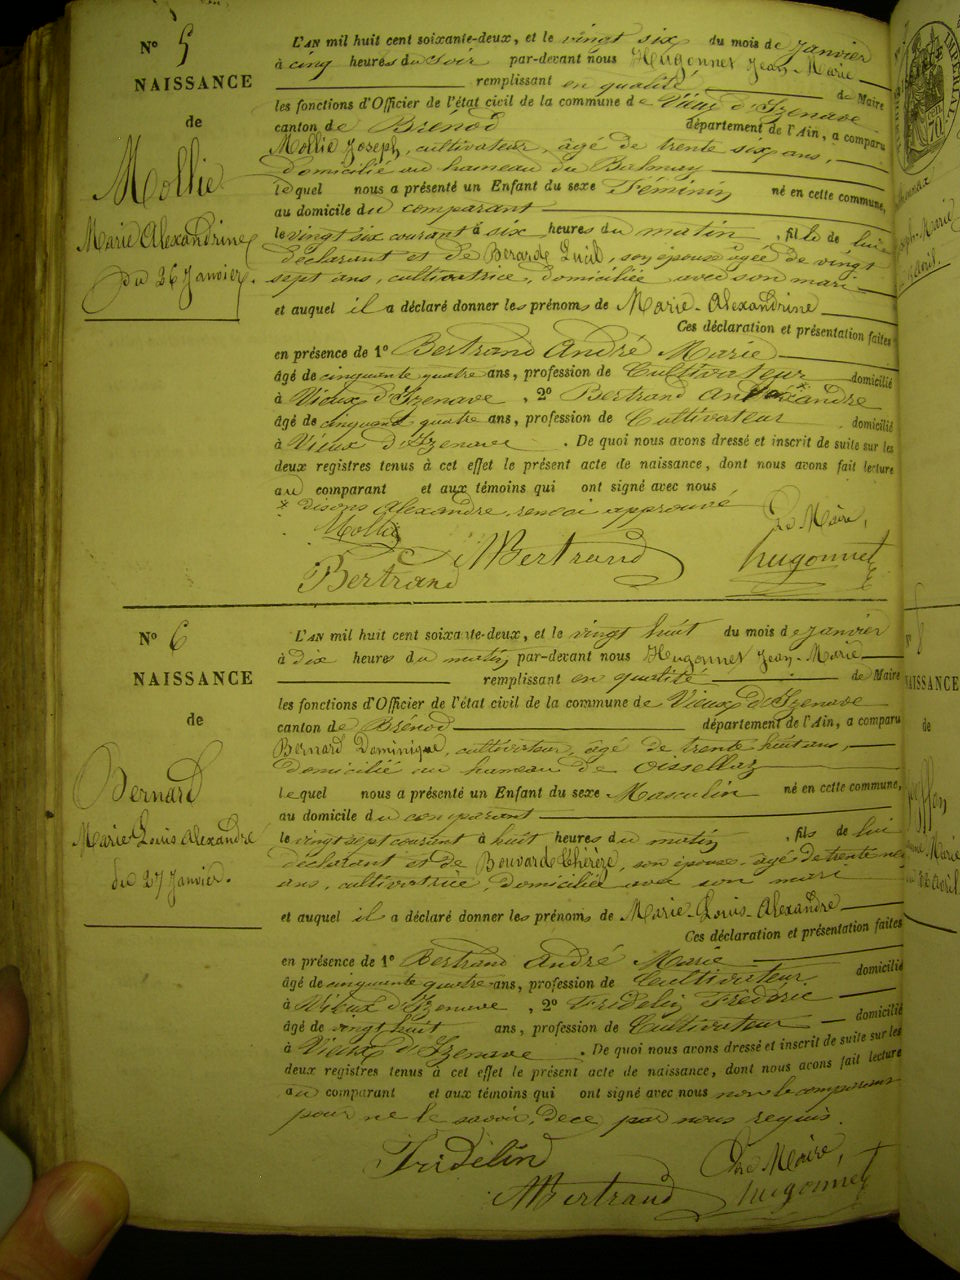 N° 5
NAISSANCE
de
Mollie
Marie Alexandrine
du 26 Janvier.
L'AN mil huit cent soixante-deux, et le vingt six du mois de Janvier
à cinq heures du soir par-devant nous Hugonnet Jean-Marie
remplissant en qualité de Maire
les fonctions d'Officier de l'état civil de la commune de Vieux d'Izenave
canton de Brénod département de l'Ain, a comparu
Mollie Joseph, cultivateur, âgé de trente six ans,
domicilié au hameau du Balmay
lequel nous a présenté un Enfant du sexe Féminin né en cette commune,
au domicile du comparant
le vingt six courant à six heures du matin, fille de lui
déclarant et de Berarde Lucil, son épouse agée de vingt
sept ans, cultivatrice, domiciliée avec son mari
et auquel il a déclaré donner les prénoms de Marie-Alexandrine
Ces déclaration et présentation faites
en présence de 1° Bertrand André Marie
âgé de cinquante quatre ans, profession de Cultivateur domicilié
à Vieux d'Izenave, 2° Bertrand
âgé de cinquante quatre ans, profession de Cultivateur domicilié
à Vieux d'Izenave. De quoi nous avons dressé et inscrit de suite sur les
deux registres tenus à cet effet le présent acte de naissance, dont nous avons fait lecture
au comparant et aux témoins qui ont signé avec nous
* disons Alexandre, renvoi approuvé
Mollie
Le Maire,
Bertrand AMBertrand hugonnet
N° 6
NAISSANCE
de
Bernard
Marie Louis Alexandre
du 27 Janvier.
L'AN mil huit cent soixante-deux, et le vingt huit du mois de Janvier
à dix heures du matin par-devant nous Hugonnet Jean-Marie
remplissant en qualité de Maire
les fonctions d'Officier de l'état civil de la commune de Vieux d'Izenave
canton de Brénod département de l'Ain, a comparu
Bernard Dominique, cultivateur, âgé de trente huit ans,
domicilié au hameau de Oissellaz
lequel nous a présenté un Enfant du sexe Masculin né en cette commune,
au domicile du comparant
le vingt sept courant à huit heures du matin, fils de lui
déclarant et de Bouvarde Thérèze, son épouse, agé de trente
ans, cultivatrice, domiciliée avec son mari
et auquel il a déclaré donner les prénoms de Marie-Louis-Alexandre
Ces déclaration et présentation faites
en présence de 1° Bertrand André Marie
âgé de cinquante quatre ans, profession de Cultivateur domicilié
à Vieux d'Izenave, 2° Fridelin Fréderic
âgé de vingt huit ans, profession de Cultivateur domicilié
à Vieux d'Izenave. De quoi nous avons dressé et inscrit de suite sur les
deux registres tenus à cet effet le présent acte de naissance, dont nous avons fait lecture
au comparant et aux témoins qui ont signé avec nous non le comparant
pour ne le savoir, de ce par nous requis.
Fridelin
Le Maire,
AMBertrand hugonnet
NAISSANCE
de